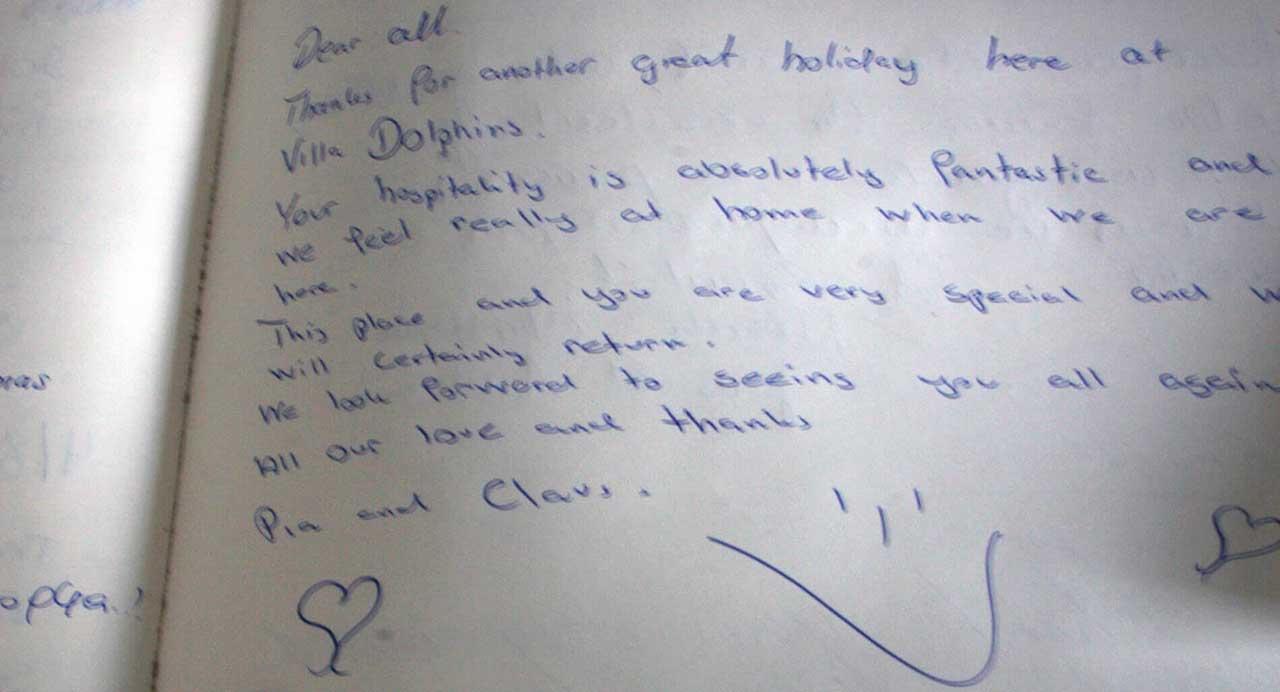 Dear all.
Thanks for another great holiday here at
Villa Dolphins.
Your hospitality is absolutely fantastic and
we feel really at home when we are
here.
This place and you are very special and
will certainly return.
We look forward to seeing you all again
All our love and thanks
Pia and Claus.